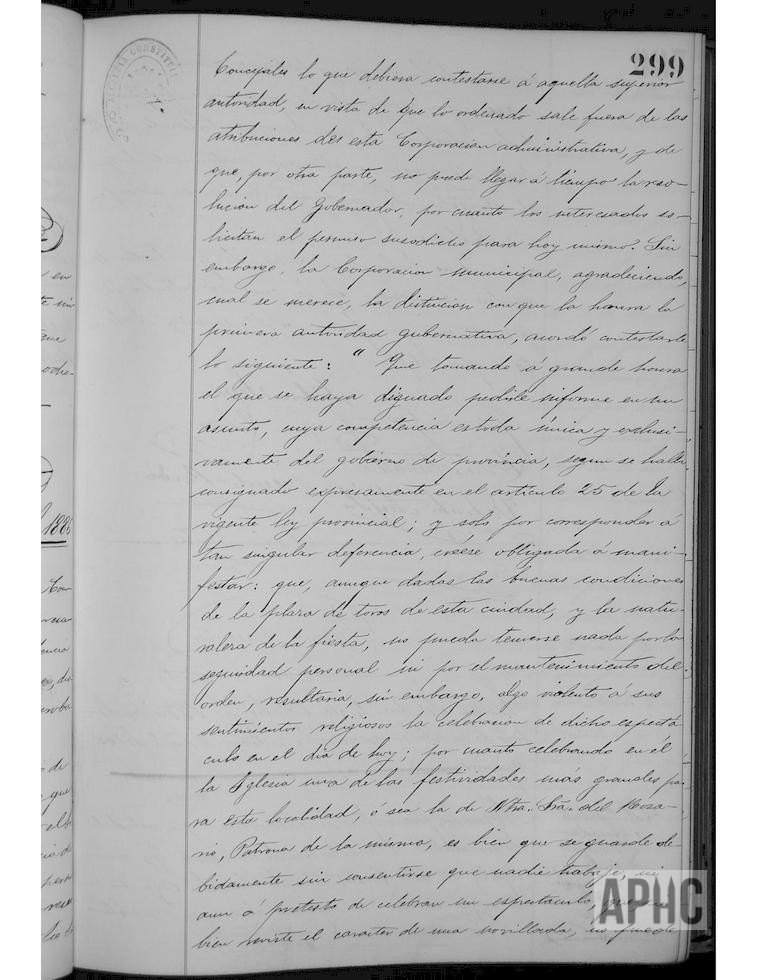 299
Concejales lo que debiera contestarse á aquella superior
autoridad, en vista de que lo ordenado sale fuera de las
atribuciones des esta Corporacion administrativa, y de
que, por otra parte, no puede llegar á tiempo la reso-
lucion del Gobernador, por cuanto los interesados so-
licitan el permiso susodicho para hoy mismo. Sin
embargo, la Corporacion municipal, agradeciendo,
cual se merece, la distincion con que la honra la
primera autoridad gubernativa, acordó contestarle
lo siguiente: " Que tomando á grande honra
el que se haya dignado pedirle informe en un
asunto, cuya competencia es toda única y exclusi-
vamente del gobierno de provincia, segun se halla
consignado expresamente en el artículo 25 de la
vigente ley provincial; y solo por corresponder á
tan singular deferencia, créese obligada á mani-
festar: que, aunque dadas las buenas condiciones
de la plaza de toros de esta ciudad, y la natu-
raleza de la fiesta, no pueda temerse nada por la
seguridad personal ni por el mantenimiento del
orden, resultaria, sin embargo, algo violento á sus
sentimientos religiosos la celebracion de dicho espectá
culo en el dia de hoy; por cuanto celebrando en él
la Iglesia una de las festividades más grandes pa-
ra esta localidad, ó sea la de Ntra. Sra. del Rosa-
rio, Patrona de la misma, es bien que se guarde de-
bidamente sin consentirse que nadie trabaje, ni
aun á pretesto de celebrar un espectaculo, que si
bien reviste el caracter de una novillada, no puede
APHC